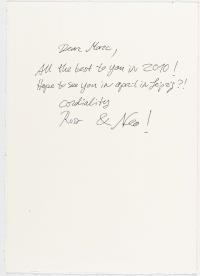 Dear Marc,
All the best to you in 2010!
Hope to see you in april in Leipzig?!
cordiality
& Neo!